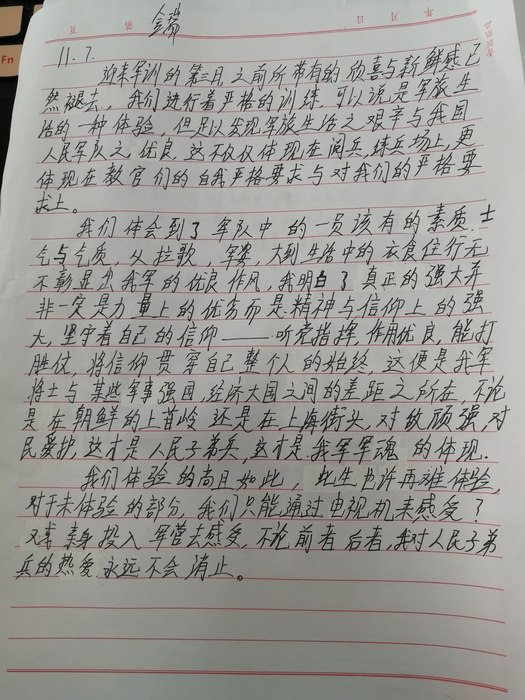 Fn
年 月 日
第 页
11.7.
迎来军训的第三日,之前所带有的欣喜与新鲜感已
然褪去,我们进行着严格的训练,可以说是军旅生
活的一种体验,但足以发现军旅生活之艰辛与我国
人民军队之优良,这不仅仅体现在阅兵、练兵场上,更
体现在教官们的自我严格要求与对我们的严格要
求上。
我们体会到了军队中的一员该有的素质、士
气与气质,从拉歌,军姿,大到生活中的衣食住行无
不彰显出我军的优良作风,我明白了真正的强大并
非一定是力量上的优劣而是精神与信仰上的强
大,坚守着自己的信仰——听党指挥,作用优良,能打
胜仗,将信仰贯穿自己整个人的始终,这便是我军
将士与某些军事强国,经济大国之间的差距之所在,不论
是在朝鲜的上甘岭还是在上海街头,对敌顽强,对
民爱护,这才是人民子弟兵,这才是我军军魂的体现.
我们体验的尚且如此,此生也许再难体验,
对于未体验的部分,我们只能通过电视机来感受?
又或亲身投入军营去感受,不论前者后者,我对人民子弟
兵的热爱永远不会消止。